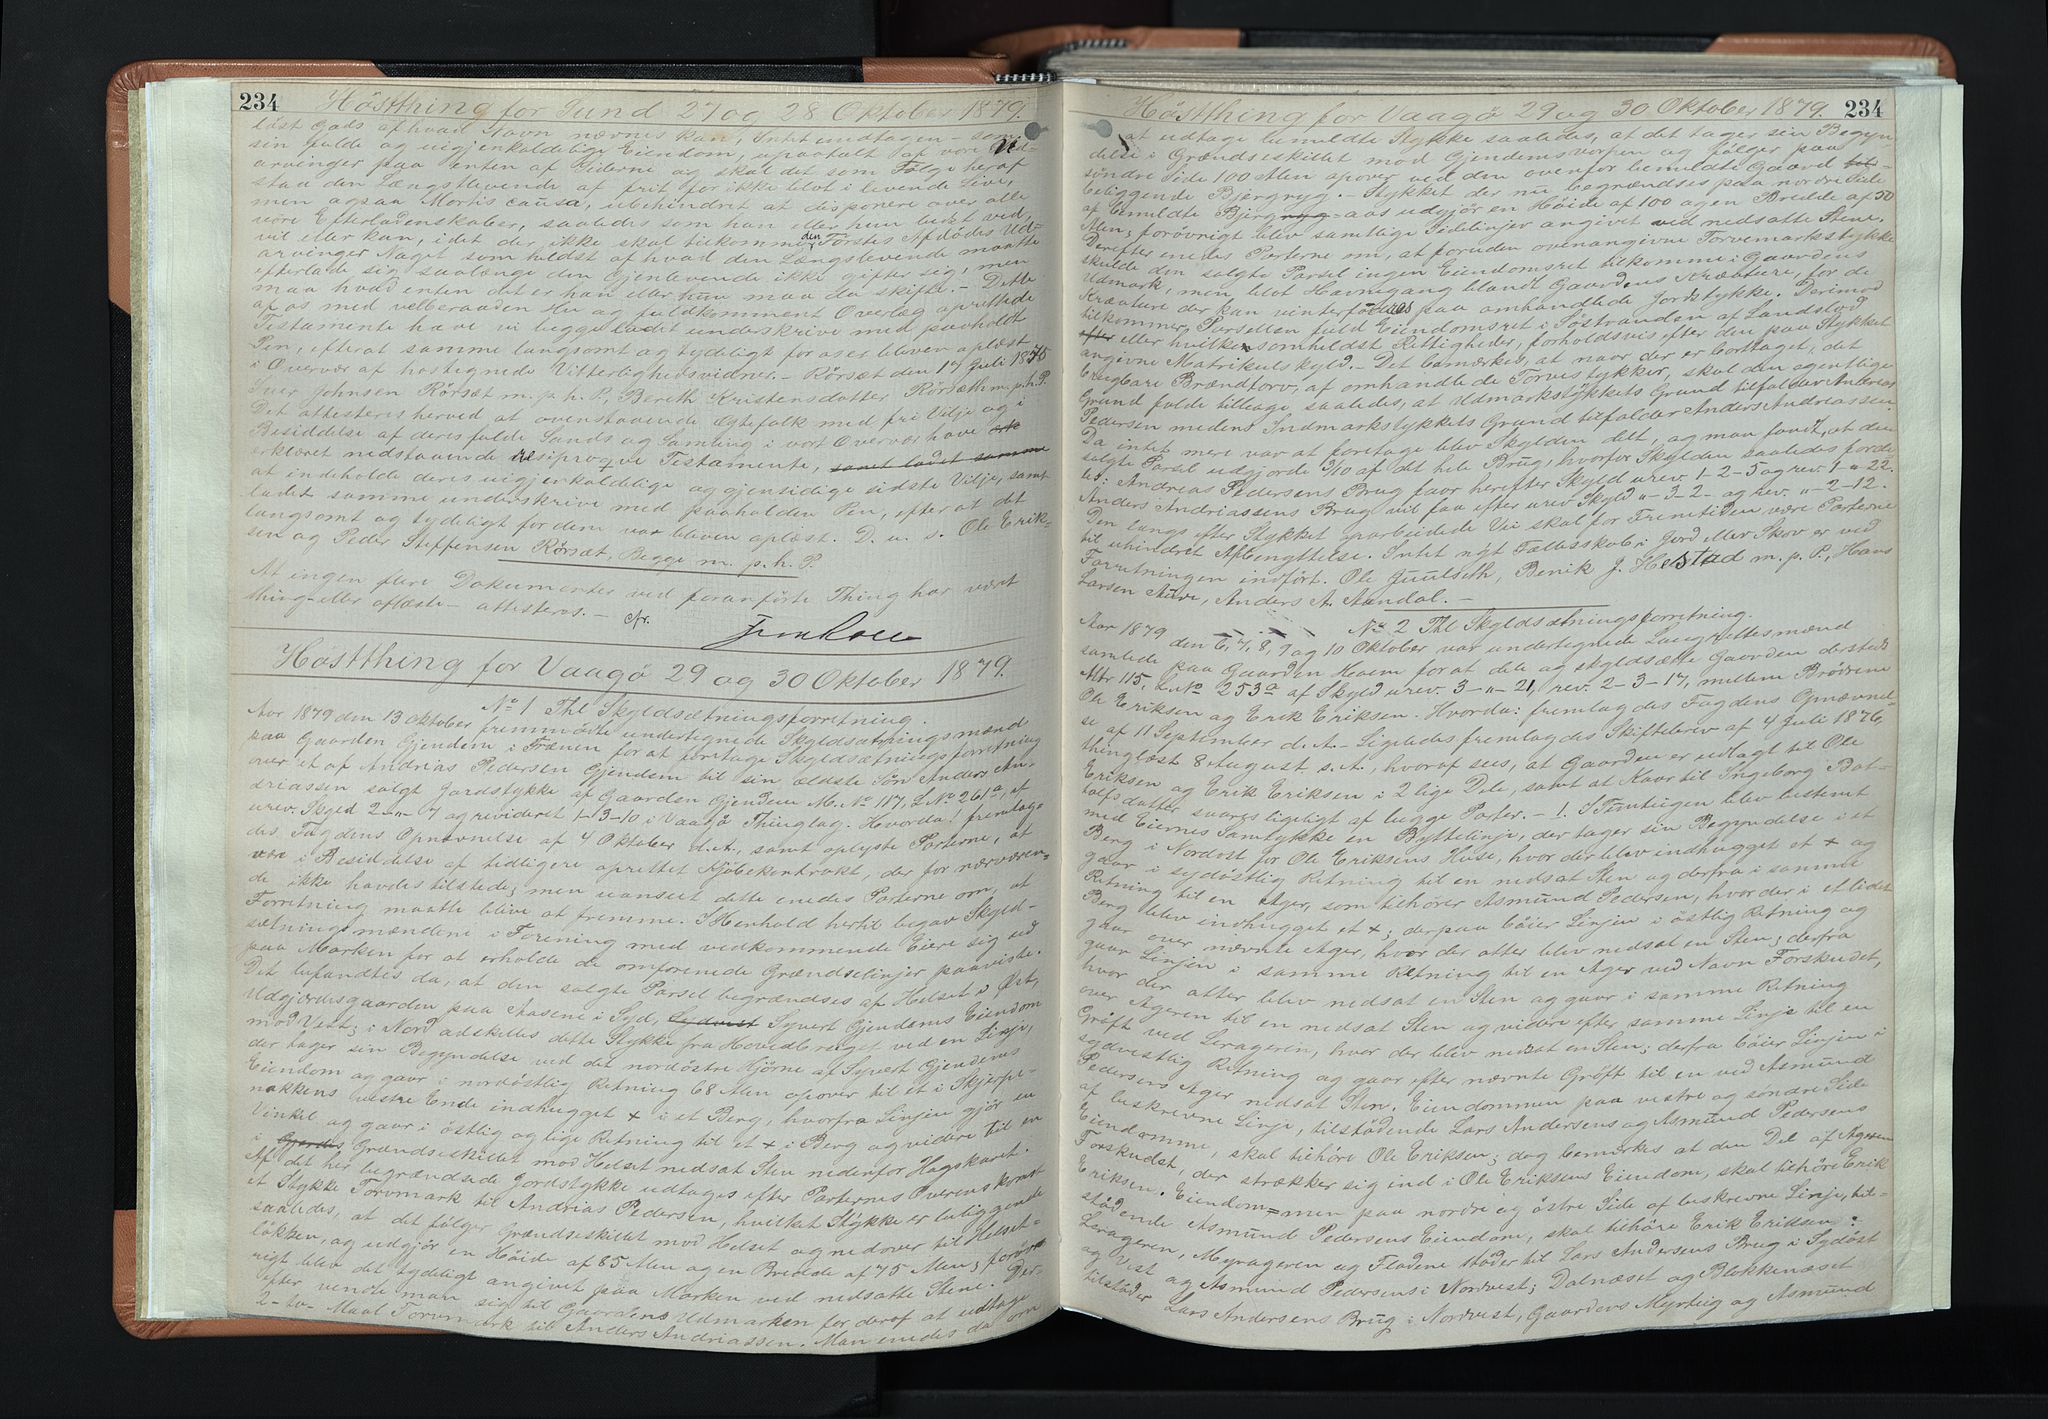 234 Høstthing for Sund 27 og 28 Oktober 1879.
løst Gods af hvad Navn nævnes kan, Intet undtagen – som
sin fulde og uigjenkaldelige Eiendom, upaatalt af vore Ud-
arvinger paa enten af Siderne og skal det som Følge heraf
staa den Længstlevende af frit for ikke blot i levende Live,
men ogsaa Mortis causa, ubehindret at disponere over alle
vore Efterladenskaber, saaledes som han eller hun bedst ved,
vil eller kan, idet der ikke skal tilkomme den Førstes Afdødes Ud-
arvinger Noget som helst af hvad den Længstlevende maatte
efterlade sig saalænge den Gjenlevende ikke gifter sig, men
maa hvad enten det er han eller hun maa da skifte. – Dette
af os med velberaaden Hu og fuldkomment Overlæg oprettede
Testamente have vi begge ladet underskrive med paaholdt
Pen, efterat samme langsomt og tydeligt for os er bleven oplæst
i Overvær af hostegnede Vitterlighedsvidner. – Rørsæt den 19 Juli 1875
Iver Johnsen Rørsæt m. p. h. P., Bereth Kristensdatter Rørsæth m. p. h. P.
Det attesteres herved at ovenstaaende Egtefolk med fri Vilje og i
Besiddelse af deres fulde Sands og Samling i vort Overvær have erk
erklæret nedstaaende resiproqve Testamente, samt ladet samme
at indeholde deres uigjenkaldelige og gjensidige sidste Vilje, samt
lades samme underskrive med paaholden Pen, efterat det
langsomt og tydeligt for dem var bleven oplæst. D. u. s. Ole Erik-
sen og Peder Steffensen Rørsæt. Begge m. p. h. P.
At ingen flere Dokumenter ved foranførte Thing har været
thing- eller aflæste – attesteres. –
Høstthing for Vaagø 29 og 30 Oktober 1879.
No 1 Thl Skyldsætningsforretning.
Aar 1879 den 13 oktober fremmødte undertegnede Skyldsætningsmænd
paa Gaarden Gjendem i Frænen for at foretage Skyldsætningsforretning
over et af Andrias Pedersen Gjendem til sin ældste Søn Anders An-
driassen solgt Jordstykke af Gaarden Gjendem M. No 117, L No 261a, af
urev. Skyld 2-"-7 og revideret 1-3-10 i Vaagø Thinglag. Hvorda: fremlag-
des Fogdens Opnævnelse af 4 Oktober d. A., samt oplyste Parterne, at
vare i Besiddelse af tidligere oprettet Kjøbekontrakt, der for nærværen-
de ikke havdes tilstede, men uanseet dette enedes Parterne om, at
Forretning maatte blive at fremme. I Henhold hertil begav Skyld-
sætningsmændene i Forening med vedkommende Eiere sig ud
paa Marken for at erholde de omforenede Grændselinjer paaviste.
Det befandtes da, at den solgte Parsel begrændses af Helset i Øst,
Udgjerdesgaarden paa Aasene i Syd, Sydvest Syvert Gjendems Eiendom
mod Vest; i Nord adskilles dette Stykke fra Hovedbruget ved en Linje,
der tager sin Begyndelse ved det nordøstre Hjørne af Syvert Gjendems
Eiendom og gaar i nordøstlig Retning 68 Alen opover til et i Skjerpe-
nakkens vestre Ende indhugget + i et Berg, hvorfra Linjen gjør en
Vinkel og gaar i østlig og lige Retning til et + i Berg og videre til en
i Gjerdes Grændseskillet mod Helset nedsat Sten nedenfor Hagskaret.
Af det her begrændsede Jordstykke udtages efter Parternes Overenskomst
et Stykke Torvmark til Andrias Pedersen, hvilket Stykke er beliggende
saaledes, at det følger Grændseskillet mod Helset og nedover til Helset-
løkken, og udgjør en Høide af 85 Alen og en Bredde af 75 Alen; forøv-
rigt blev det tydeligt angivet paa Marken ved nedsatte Stene. Der-
efter vendte man sig til Gaardens Udmarken for deraf at udtage
2-to- Maal Torvmark til Anders Andriassen. Man enedes da om
Høstthing for Vaagø 29 og 30 Oktober 1879. 234
at udtage bemeldte Stykke saaledes, at det tager sin Begyn-
delse i Grændseskillet mod Gjendemsvorpen og følger paa
søndre Side 100 Alen opover ved den ovenfor bemeldte Gaard
beliggende Bjergryg. – Stykket der nu begrændses paa nordre Side
af bemeldte Bjergryg-aas udgjør en Høide af 100 og en Bredde af 50
Alen; forøvrigt blev samtlige Sidelinjer angivet ved nedsatte Stene.
Derefter enedes Parterne om, at foruden ovenangivne Torvemarksstykke
skulde den solgte Parsel ingen Eiendomsret tilkomme i Gaardens
Udmark, men blot Havnegang blandt Gaardens Kreature, for de
Kreature der kan vinterfødes paa omhandlede Jordstykke. Derimod
tilkommer Parsellen fuld Eiendomsret i Søstranden af Landslod
efter eller hvilkensomheldst Rettigheder, forholdsvis efter den paa Stykket
angivne Matrikulskyld. – Det bemærkes, at naar der er borttaget, det
brugbare Brændtorv, af omhandlede Torvestykker, skal den egentlige
Grund falde tilbage saaledes, at Udmarkstykkets Grund tilfalder Andreas
Pedersen medens Indmarkstykkets Grund tilfalder Anders Andreassen.
Da intet mere var at foretage blev Skylden delt, og man fandt, at den
solgte Parsel udgjorde 3/10 af det hele Brug, hvorfor Skylden saaledes forde
les: Andreas Pedersens Brug faar herefter Skyld urev. 1-2-5 og rev. 1-"-22.
Anders Andriassens Brug vil faa efter urev Skyld "-3-2- og rev. "-2-12.
Den langs efter Stykket oparbeidede Vei skal for Fremtiden være Parterne
til uhindret Afbenyttelse. Intet nyt Fællesskab i Jord eller Skov er ved
Forretningen indført. Ole Juulseth, Benik J. Helstad m. p. P., Hans
Larsen Aure, Anders A. Aandal. –
No 2 Thl Skyldsætningsforretning.
Aar 1879 den 6, 7, 8, 9 og 10 Oktober var undertegnede Laugrettesmænd
samlede paa Gaarden Hoem for at dele og skyldsætte Gaarden dersteds
Mtr 115, L No 253a af Skyld urev. 3-"-21, rev. 2-3-17, mellem Brødrene
Ole Eriksen og Erik Eriksen. Hvorda: fremlagdes Fogdens Opnævnel-
se af 11 September d. A. – Ligeledes fremlagdes Skiftebrev af 4 Juli 1876,
thinglæst 8 August s. A., hvoraf sees, at Gaarden er udlagt til Ole
Eriksen og Erik Eriksen i 2 lige Dele, samt at Kaar til Ingeborg Bot-
tolfsdatter svares ligeligt af begge Parter. – 1. I Tømtingen blev bestemt
med Eiernes Samtykke en Byttelinje, der tager sin Begyndelse i et
Berg i Nordost for Ole Eriksens Huse, hvor der blev indhugget et + og
gaar i sydøstlig Retning til en nedsat Sten og derfra i samme
Retning til en Ager, som tilhører Asmund Pedersen, hvor der i et lidet
Berg blev indhugget et +; derpaa bøier Linjen i østlig Retning og
gaar over nævnte Ager, hvor der atter blev nedsat en Sten; derfra
gaar Linjen i samme Retning til en Ager ved Navn Forskudet,
hvor der atter blev nedsat en Sten og gaar i samme Retning
over Ageren til en nedsat Sten og videre efter samme Linje til en
Grøft ved Lerageren, hvor der blev nedsat en Sten; derfra bøier Linjen i
sydvestlig Retning og gaar efter nævnte Grøft til en ved Asmund
Pedersens Ager nedsat Sten. Eiendommen paa vestre og søndre Side
af beskrevne Linje, tilstødende Lars Andersens og Asmund Pedersens
Eiendomme, skal tilhøre Ole Eriksen; dog bemærkes at den Del af Ageren
Forskudet, der strækker sig ind i Ole Eriksens Eiendom, skal tilhøre Erik
Eriksen. Eiendom=men paa nordre og østre Side af beskrevne Linje, til-
stødende Asmund Pedersens Eiendom, skal tilhøre Erik Eriksen:
Lerageren, Myrageren og Fladene støder til Lars Andersens Brug i Sydøst
og Vest og Asmund Pedersens i Nordvest; Dalnæset og Blokkenæset
tilstøder Lars Andersens Brug i Nordvest, Gaardens Myrteig og Asmund